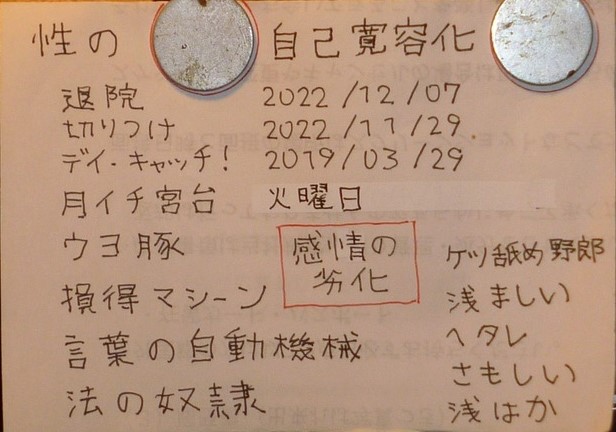 性の 自己寛容化
退院 2022/12/07
切りつけ 2022/11/29.
デイ・キャッチ! 2019/03/29
月イチ宮台 火曜日
ウヨ豚
損得マシーン
言葉の自動機械
法の奴隷
感情の
劣化
ケツ舐め野郎
浅ましい
ヘタレ
さもしい
浅はか